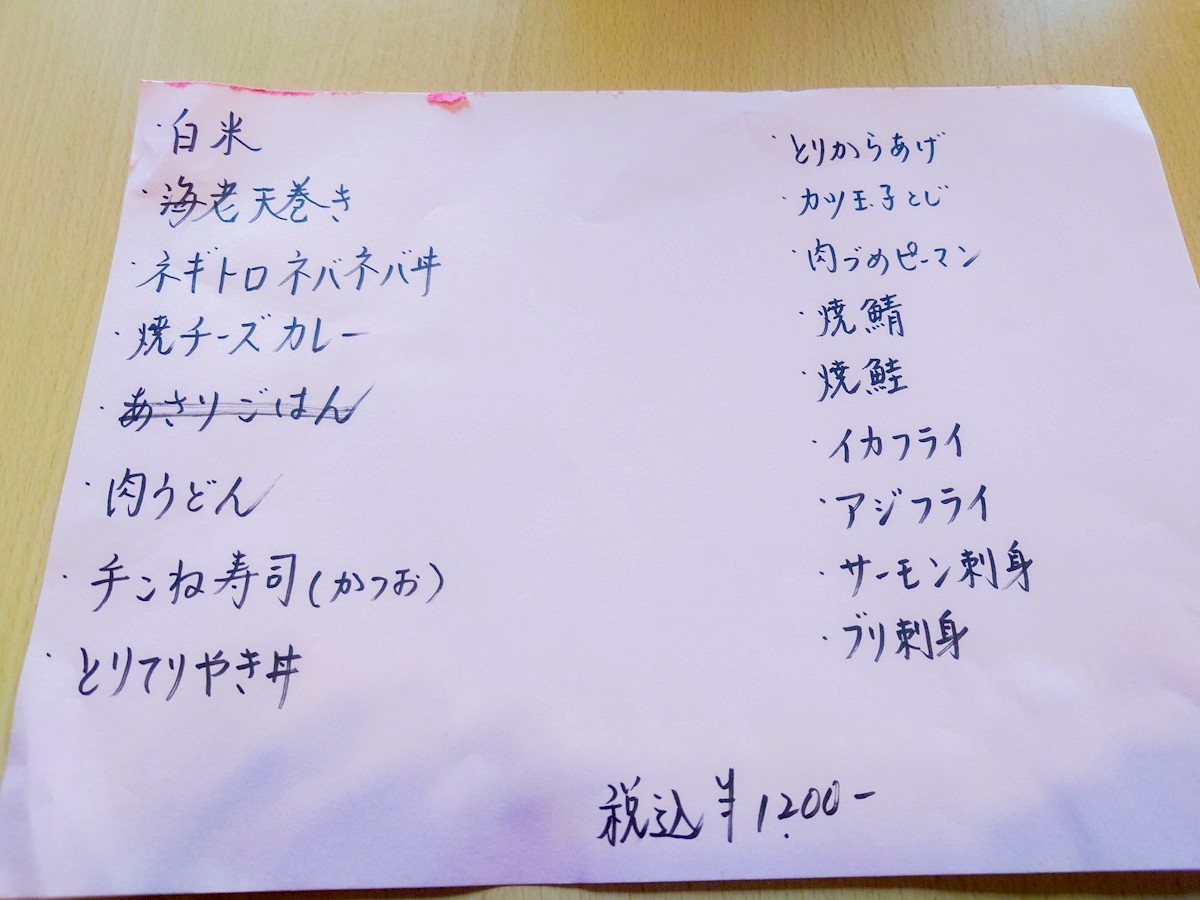 ・白米
・海老天巻き
・ネギトロネバネバ丼
・焼チーズカレー
・あさりごはん
・肉うどん
・手こね寿司(かつお)
・とりてりやき丼
・とりからあげ
・カツ玉子とじ
・肉づめピーマン
・焼鯖
・焼鮭
・イカフライ
・アジフライ
・サーモン刺身
・ブリ刺身
税込¥1,200-